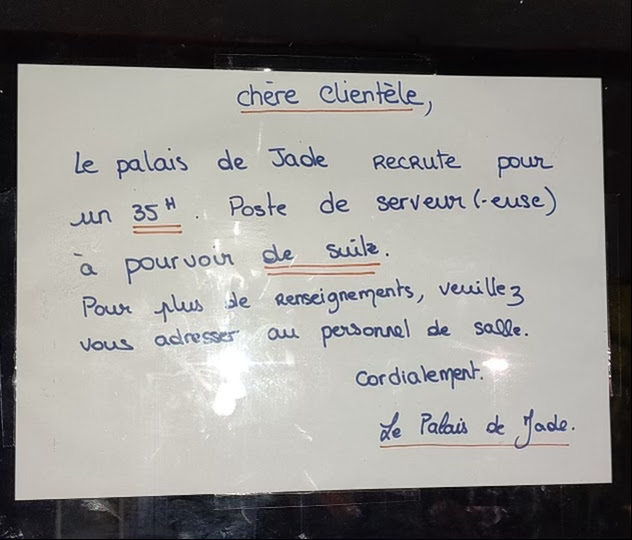 chère Clientèle,
Le palais de Jade RECRUTE pour
un 35H. Poste de serveur (-euse)
à pourvoir de suite.
Pour plus de Renseignements, veuillez
vous adresser au personnel de salle.
Cordialement.
Le Palais de Jade.